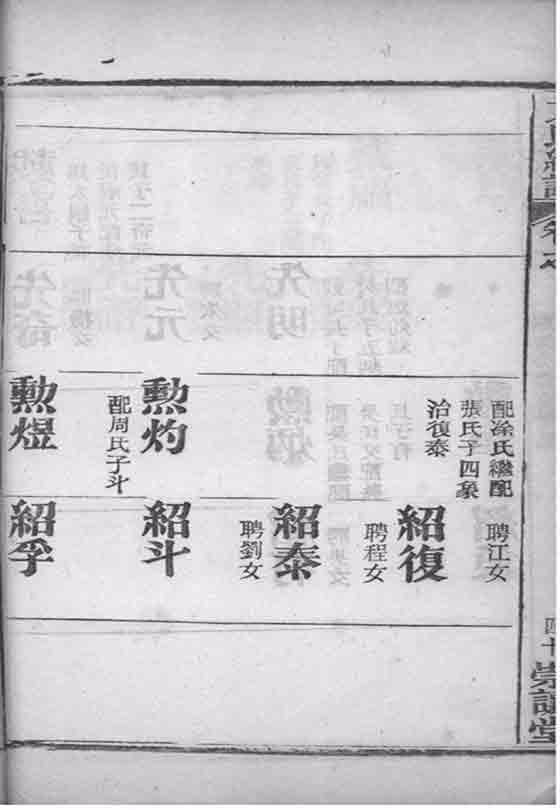 配涂氏繼配
張氏子四象
治復泰
勲灼
配周氏子斗
勲煜
聘江女
紹復
聘程女
紹泰
聘劉女
紹斗
紹孚
四十